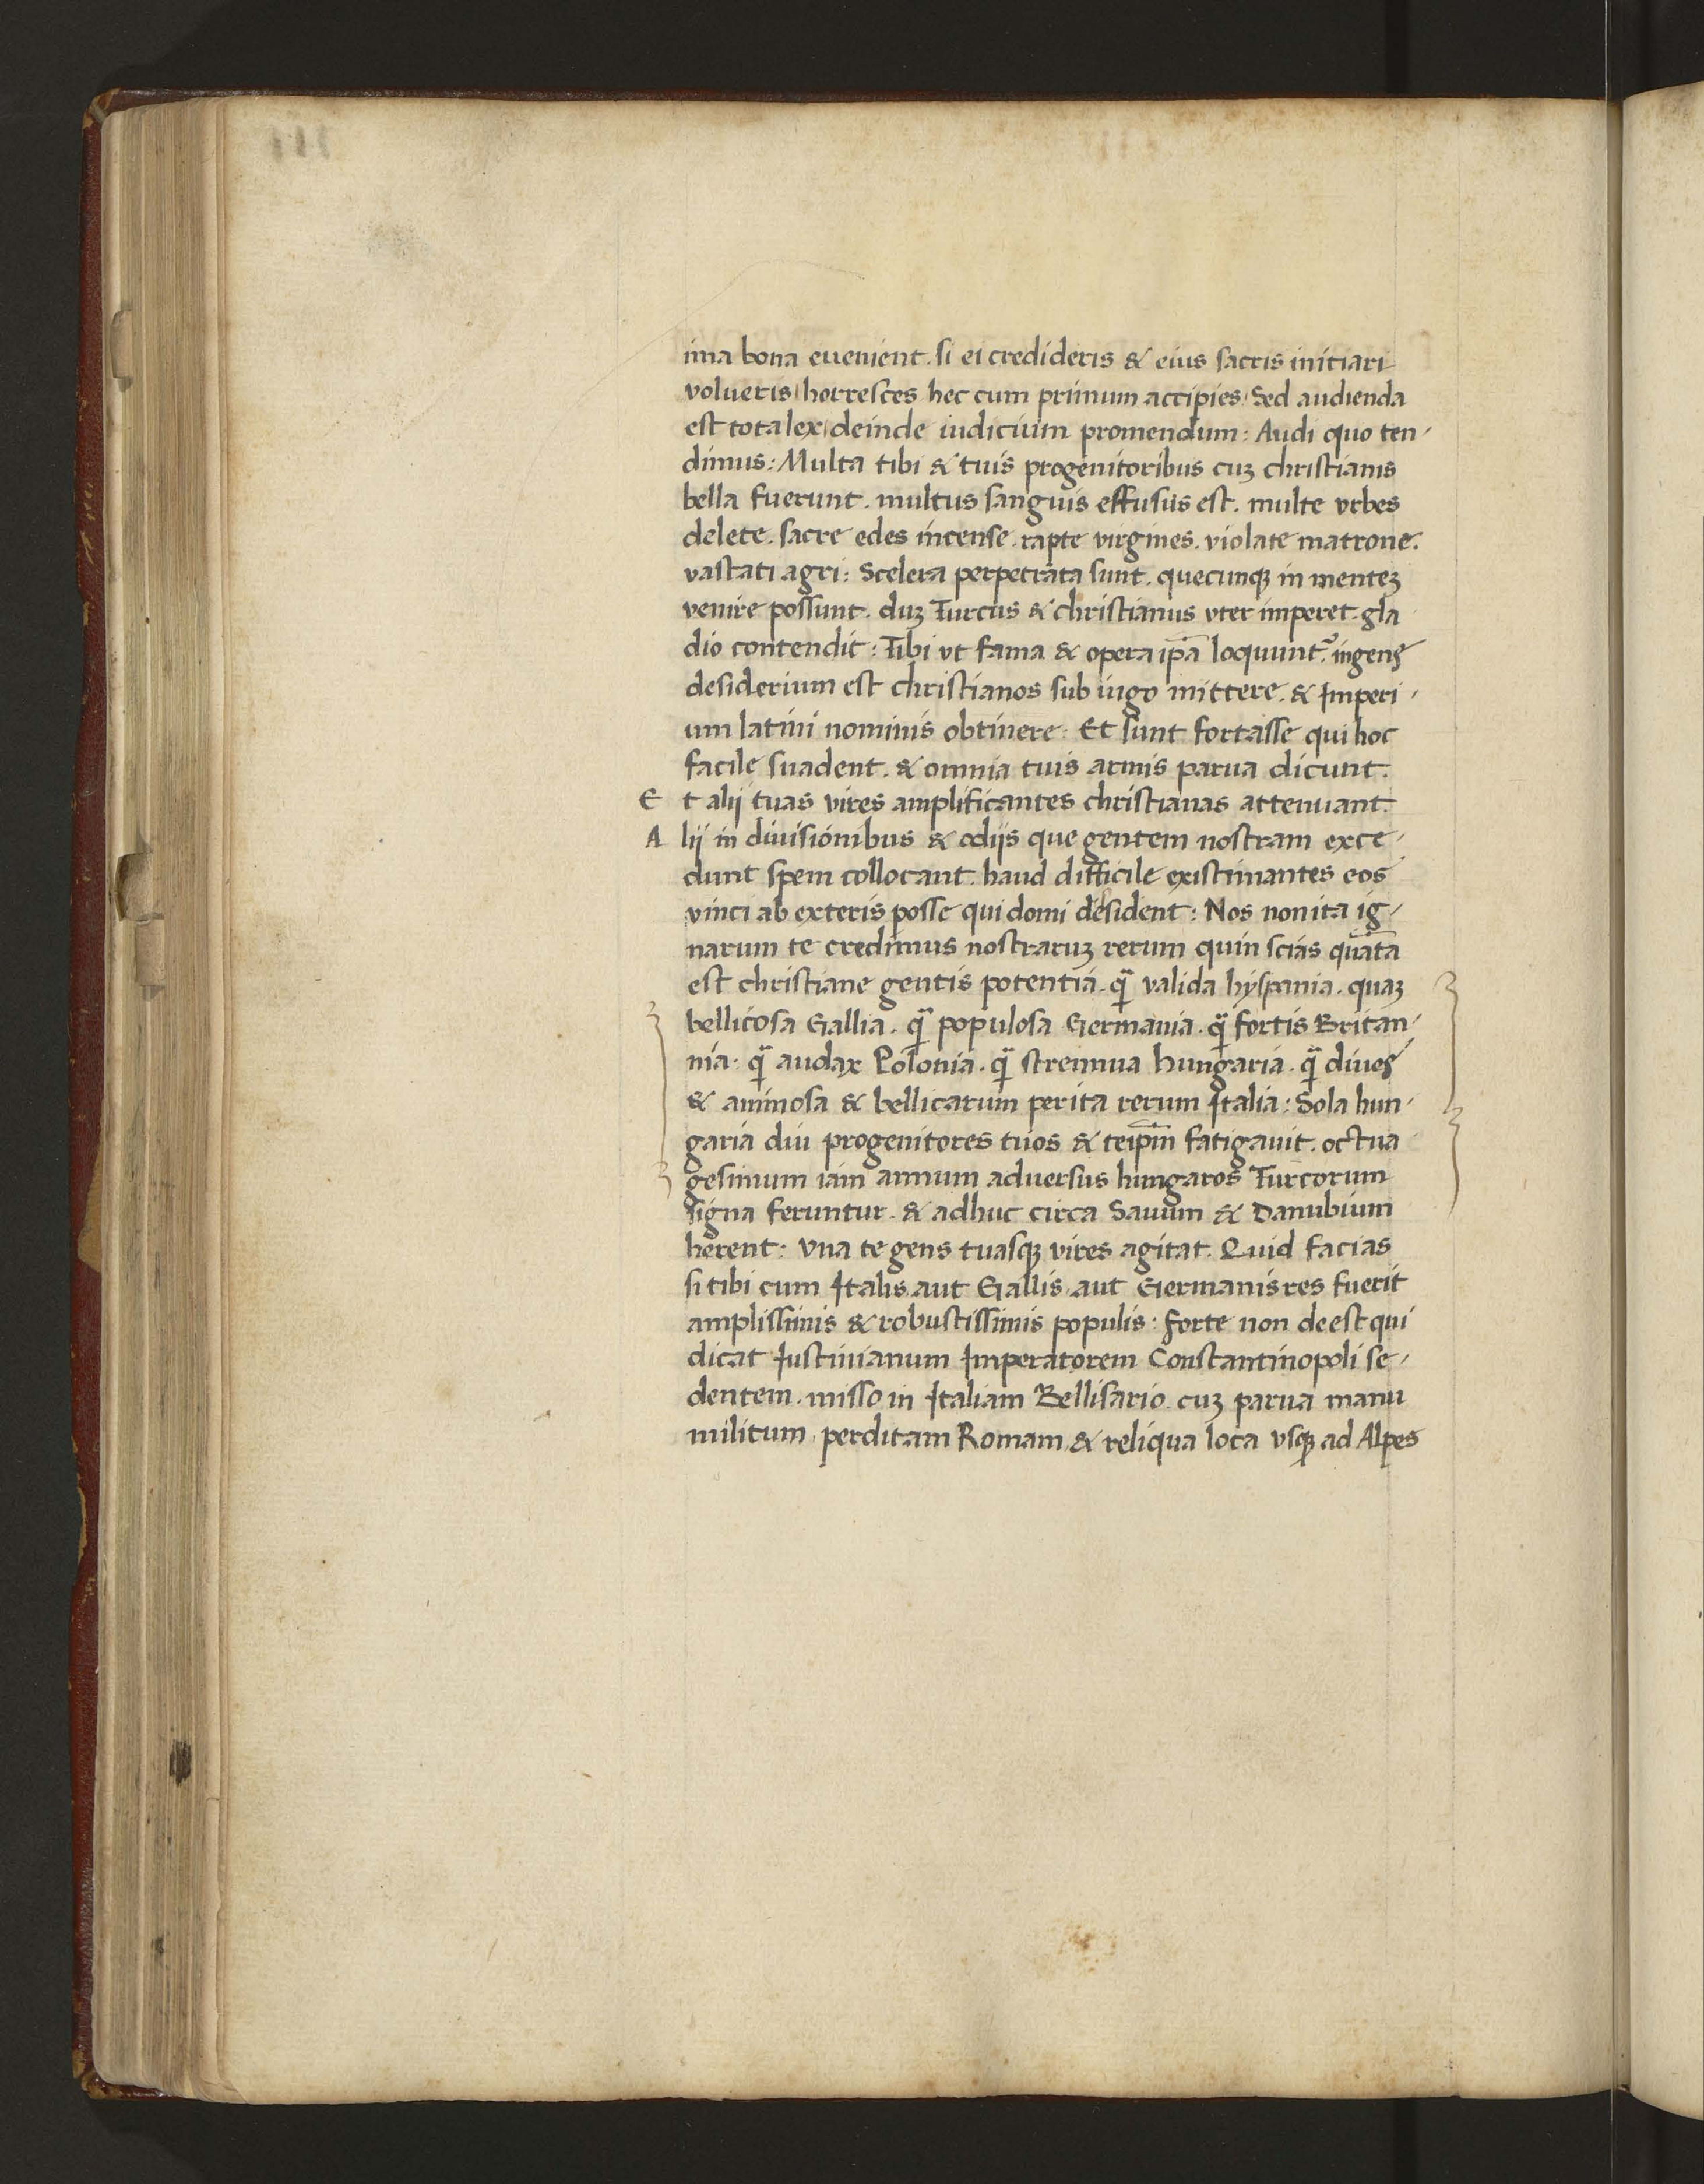 ima bona euenient. si ei credideris & eius sacris initiari
volueris / horresces hec cum primum accipies / Sed audienda
est tota lex / deinde iudicium promendum: Audi quo ten-
dimus: Multa tibi & tuis progenitoribus cuꝫ christianis
bella fuerunt. multus sanguis effusus est. multe vrbes
delete. sacre edes incense. rapte virgines. violate matrone.
vastati agri: Scelera perpetrata sunt. quecunqꝫ in menteꝫ
venire possunt. duꝫ Turcus & christianus vter imperet. gla
dio contendit: Tibi vt fama & opera ip̄a loquunt᷑. ingens
desiderium est christianos sub iugo mittere. & Imperi-
um latini nominis obtinere: Et sunt fortasse qui hoc
facile suadent. & omnia tuis armis parua dicunt.
Et alij tuas vires amplificantes christianas attenuant.
Alij in diuisionibus & odijs que gentem nostram exce-
dunt spem collocant. haud difficile existimantes eos
vinci ab exteris posse qui domi desident: Nos non ita ig-
narum te credimus nostraruꝫ rerum quin scias quāta
est christiane gentis potentia. q̄ valida hyspania. quaꝫ
bellicosa Gallia. q̄ populosa Germania. q̄ fortis Britan-
nia. q̄ audax Polonia. q̄ strennua hungaria. q̄ diues
& animosa & bellicarum perita rerum Italia: Sola hun-
garia diu progenitores tuos & teip̄m fatigauit. octua
gesimum iam annum aduersus hungaros Turcorum
signa feruntur. & adhuc circa Sauum & Danubium
herent: Vna te gens tuasqꝫ vires agitat. Quid facias
si tibi cum Italis aut Gallis aut Germanis res fuerit
amplissimis & robustissimis populis: Forte non deest qui
dicat Iustinianum Imperatorem Constantinopoli se-
dentem. misso in Italiam Bellisario. cuꝫ parua manu
militum perditam Romam & reliqua loca vsqꝫ ad Alpes